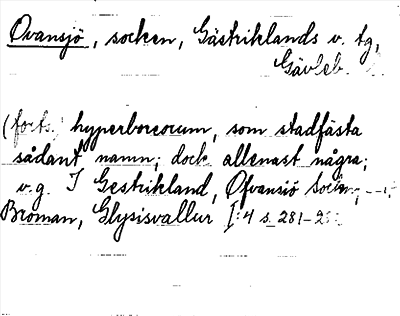 Ovansjö, socken, Gästriklands v. tg,
Gävleb.
(forts.) hyperboreorum, som stadfästa
sådant namn; dock allenast några;
v.g. I Gestrikland, Ofvansiö Sockn, —
Broman, Glysisvallur I:4 s. 281-